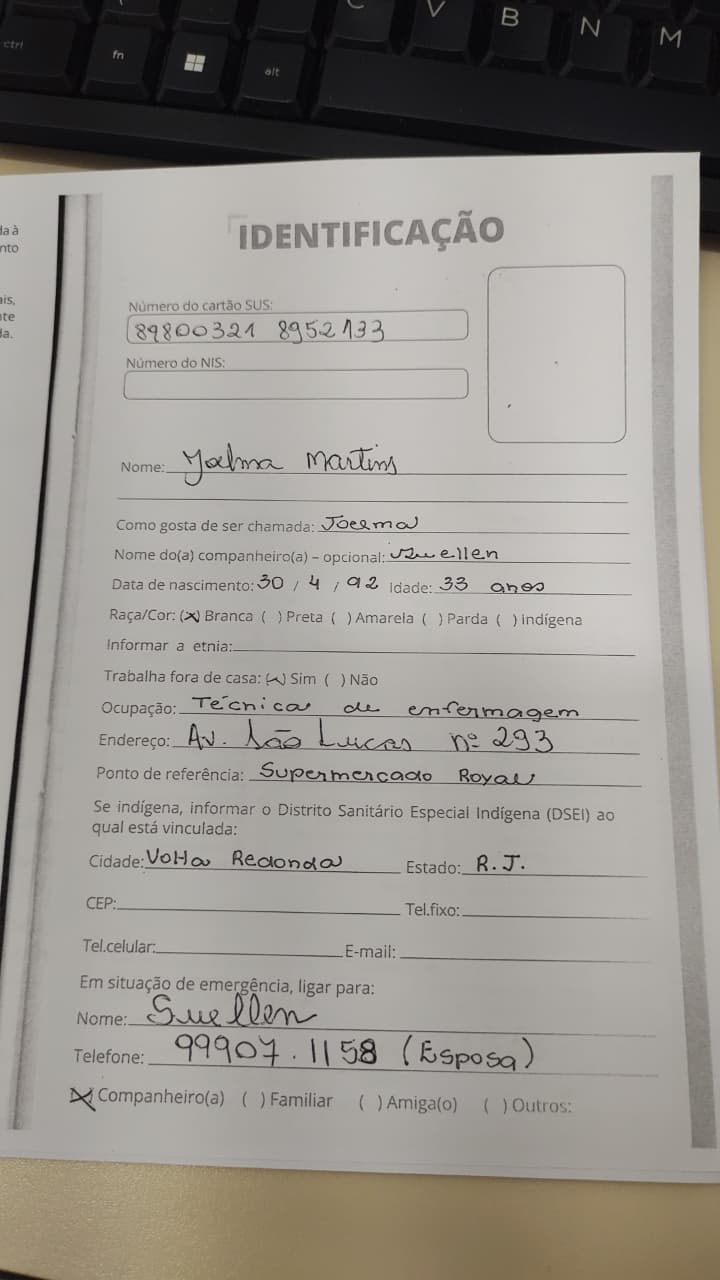 ctrl
fn
alt
C V B N M
da à
nto
ais,
te
da.
IDENTIFICAÇÃO
Número do cartão SUS:
89800321 8952133
Número do NIS:
Nome: Joelma Martins
Como gosta de ser chamada: Joelma
Nome do(a) companheiro(a) – opcional: Suellen
Data de nascimento: 30 / 4 / 92 Idade: 33 anos
Raça/Cor: (x) Branca ( ) Preta ( ) Amarela ( ) Parda ( ) indígena
Informar a etnia:
Trabalha fora de casa: (x) Sim ( ) Não
Ocupação: Técnica de enfermagem
Endereço: Av. São Lucas nº 293
Ponto de referência: Supermercado Royal
Se indígena, informar o Distrito Sanitário Especial Indígena (DSEI) ao
qual está vinculada:
Cidade: Volta Redonda Estado: R.J.
CEP: Tel.fixo:
Tel.celular: E-mail:
Em situação de emergência, ligar para:
Nome: Suellen
Telefone: 99907.1158 (Esposa)
(x) Companheiro(a) ( ) Familiar ( ) Amiga(o) ( ) Outros: